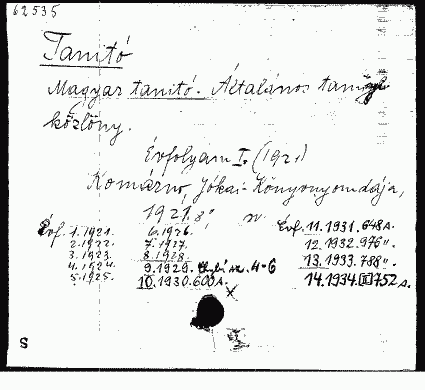 62535
Tanító
Magyar tanító. Általános tanügyi
közlöny.
Évfolyam I. (1921)
Komárno, Jókai-Könyvnyomdája,
1921. 8°
Évf. 1.1921. 6.1926. Évf. 11.1931. 648 A.
2.1922. 7.1927. 12.1932. 976 ".
3.1923. 8.1928. 13.1933. 788 ".
4.1924. 9.1929. 4-6 14.1934. 752 A.
5.1925. 10.1930. 600 A.
S